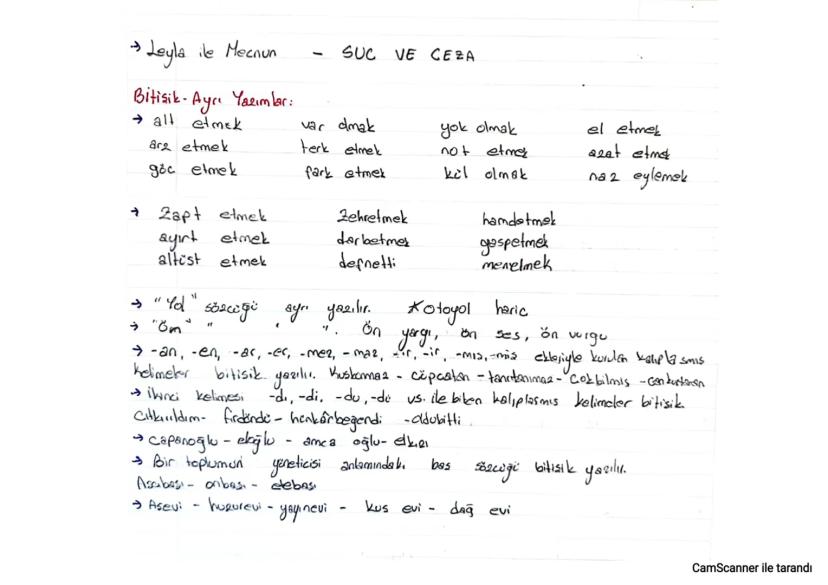 → Leyla ile Mecnun - SUC VE CEZA
Bitişik-Ayrı Yazımlar:
→ alt etmek var olmak yok olmak el etmek
arz etmek terk etmek not etmek azat etmek
göc etmek fark etmek kül olmak naz eylemek
→ Zapt etmek Zehretmek hamdetmek
ayırt etmek darbetmek gaspetmek
altüst etmek defnetti menetmek
→ "Yol" sözcüğü ayrı yazılır. *otoyol haric
→ "Ön" " " ". Ön yargı, ön ses, ön vurgu
→ -an, -en, -ar, -er, -mez, -maz, -ır, -ir, -mış, -miş ekleriyle kurulan kalıplasmıs
kelimeler bitisik yazılır. Kuskonmaz - cöpcatan - tanrıtanımaz - Cokbilmis - cankurtaran
→ ikinci kelimesi -dı, -di, -du, -dü vs. ile biten kalıplasmıs kelimeler bitisik
Cıtkırıldım - fırdöndü - hünkârbeğendi - oldubitti
→ capanoğlu - eloğlu - amca oğlu - elkızı
→ Bir toplumun yöneticisi anlamındaki bas sözcüğü bitişik yazılır.
Ascıbası - onbası - elebası
→ Asevi - huzurevi - yayınevi - kus evi - dağ evi
CamScanner ile tarandı